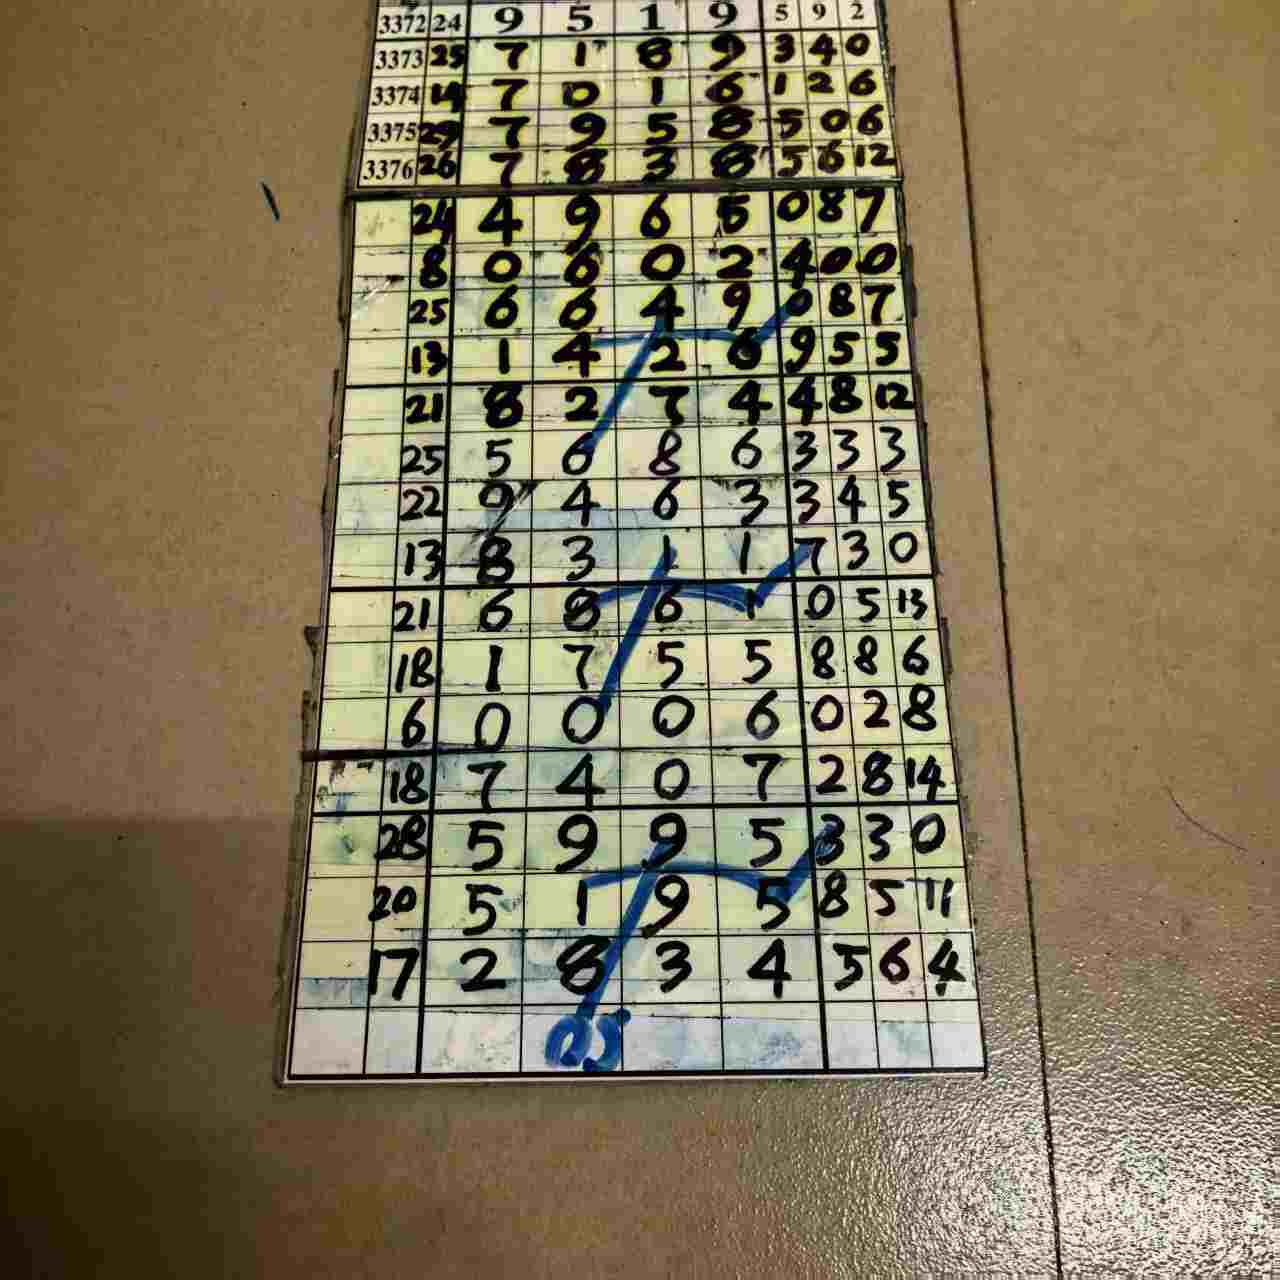 3372 24 9 5 1 9 5 9 2
3373 25 7 1 8 9 3 4 0
3374 14 7 0 1 6 1 2 6
3375 29 7 9 5 8 5 0 6
3376 26 7 8 3 8 5 6 12
24 4 9 6 5 0 8 7
8 0 6 0 2 4 0 0
25 6 6 4 9 0 8 7
13 1 4 2 6 9 5 5
21 8 2 7 4 4 8 12
25 5 6 8 6 3 3 3
22 9 4 6 3 3 4 5
13 8 3 1 1 7 3 0
21 6 8 6 1 0 5 13
18 1 7 5 5 8 8 6
6 0 0 0 6 0 2 8
18 7 4 0 7 2 8 14
28 5 9 9 5 3 3 0
20 5 1 9 5 8 5 11
17 2 8 3 4 5 6 4
05